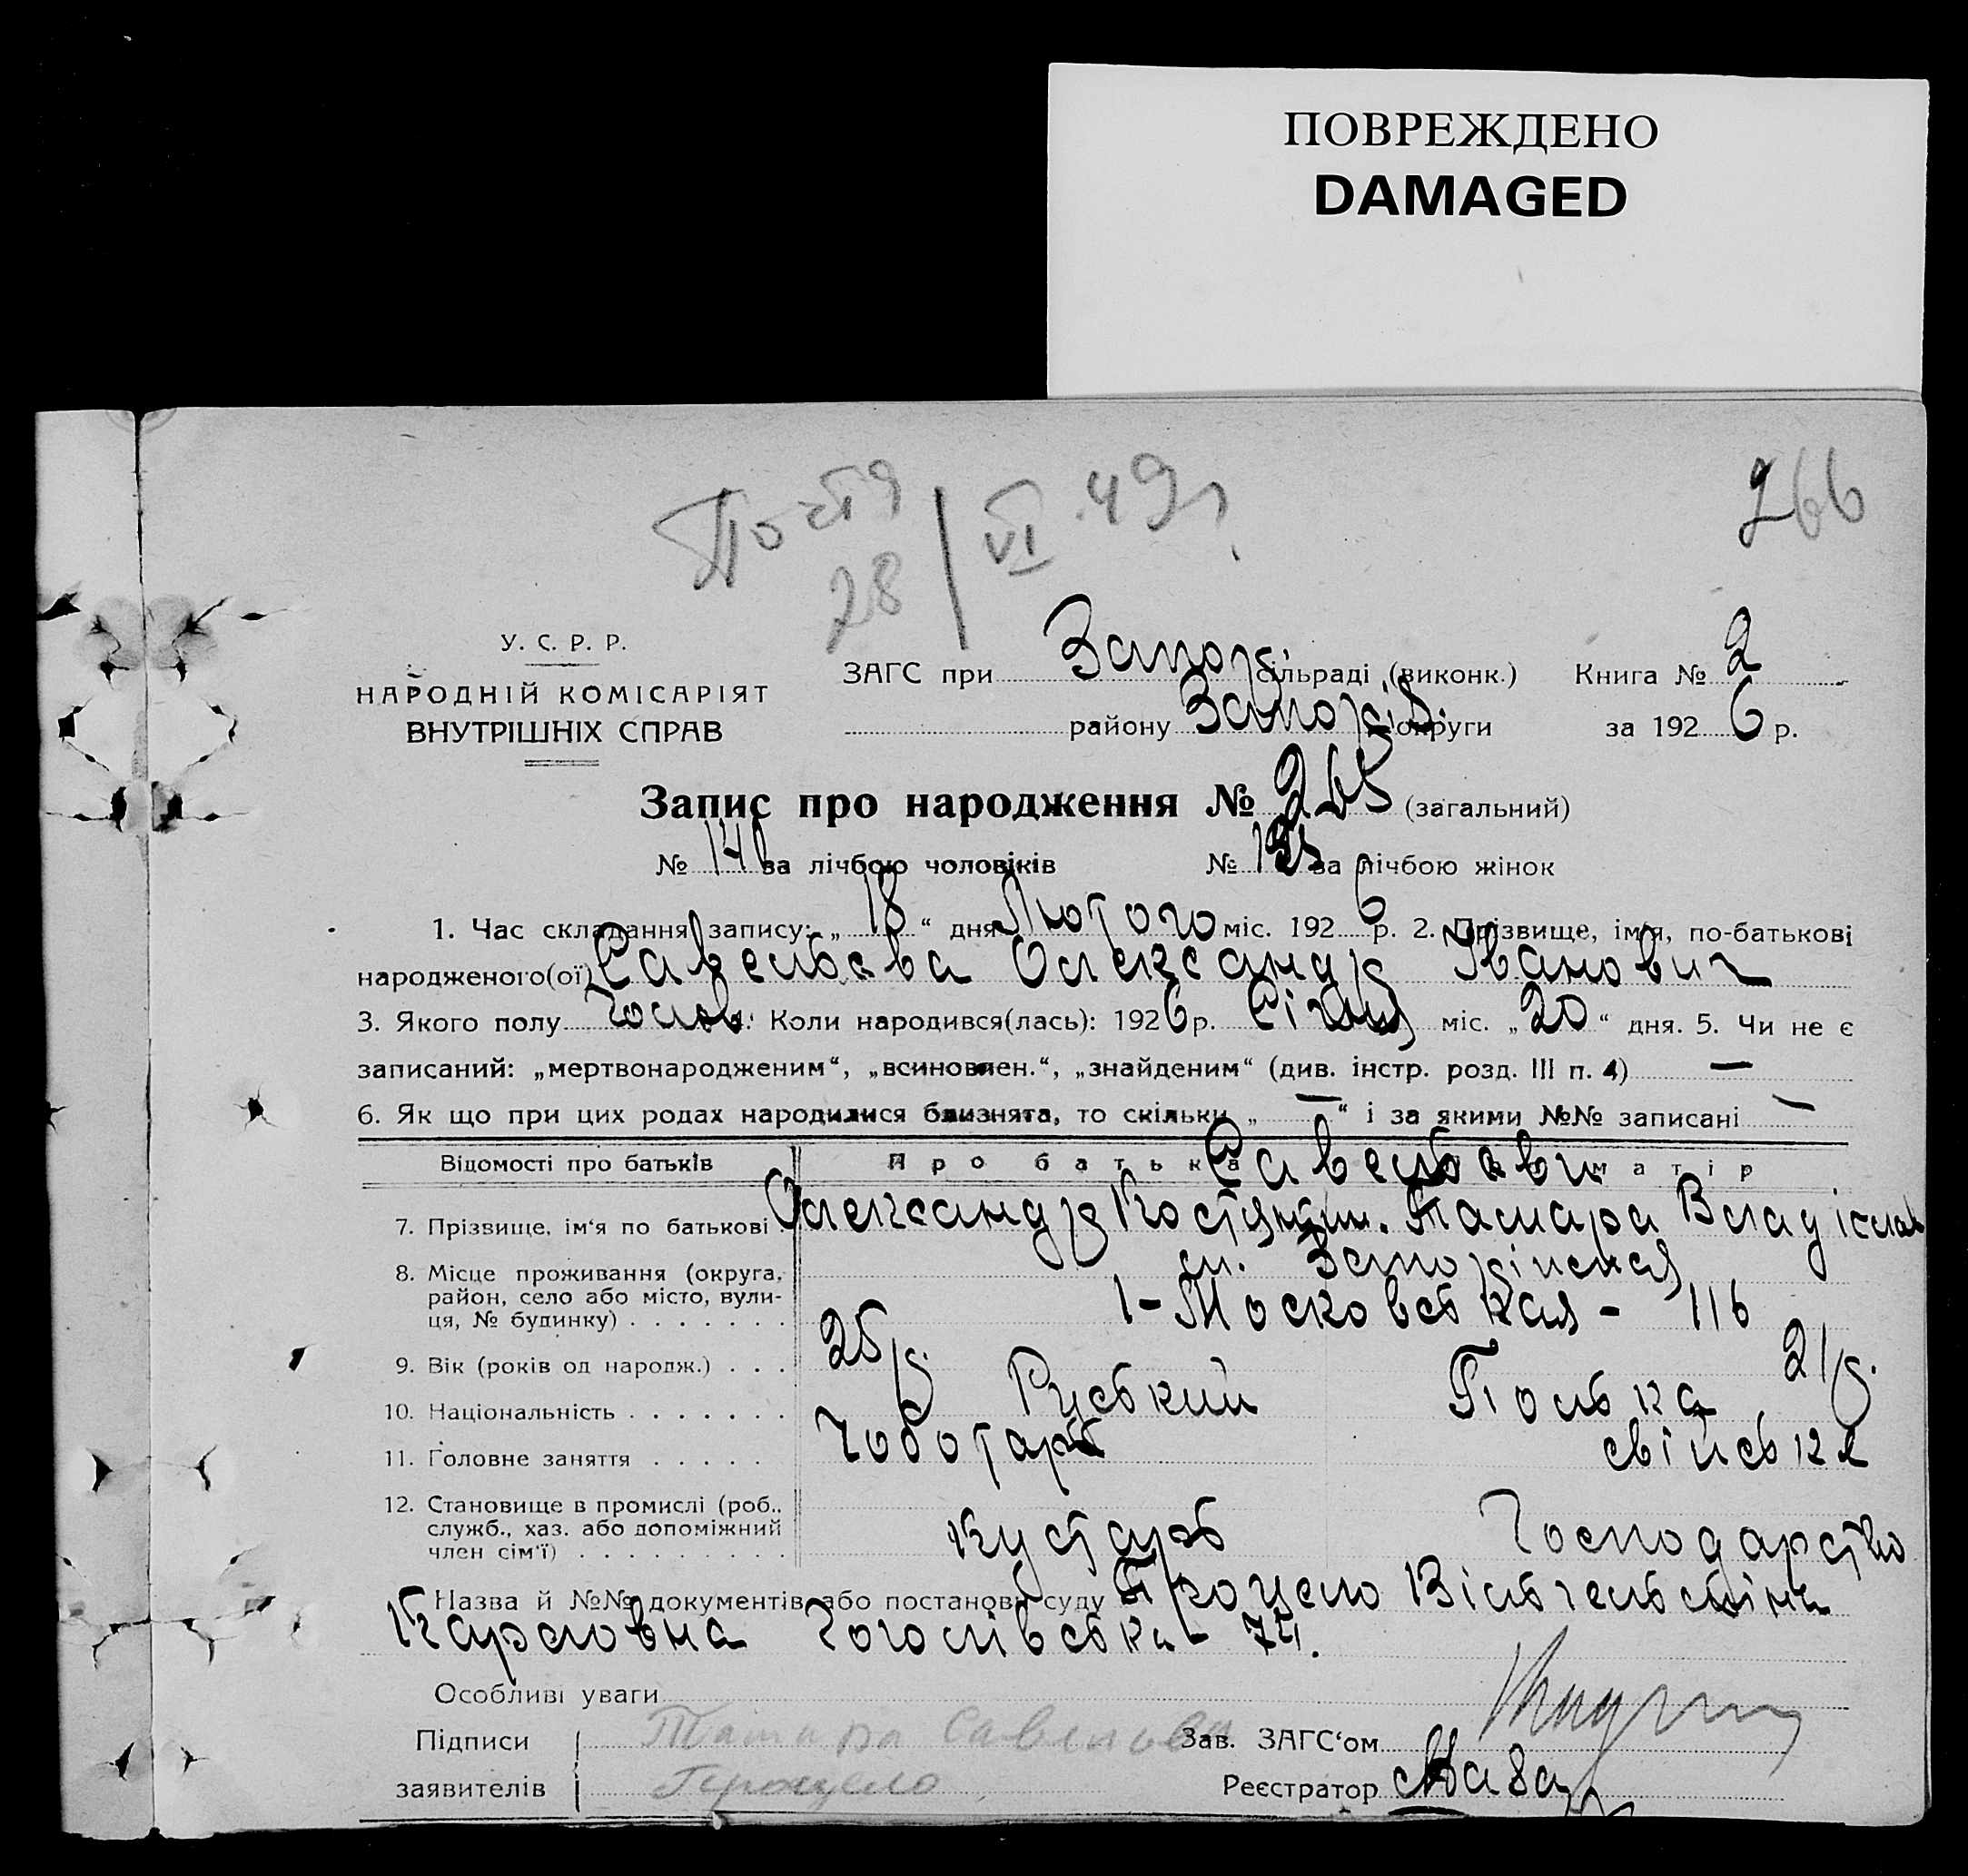 ПОВРЕЖДЕНО
DAMAGED
266
28/VI.49г.
У. С. Р. Р.
НАРОДНІЙ КОМІСАРІЯТ
ВНУТРІШНІХ СПРАВ
ЗАГС при Запоріз. сільраді (виконк.) Книга № 2
району Запоріз. округи за 1926 р.
Запис про народження № 265 (загальний)
№ 140 за лічбою чоловіків № за лічбою жінок
1. Час складання запису: „18“ дня Лютого міс. 1926 р. 2. Прізвище, ім'я, по-батькові
народженого(ої) Савельєва Олександр Іванович
3. Якого полу Чолов. Коли народився(лась): 1926 р. Січня міс. „20“ дня. 5. Чи не є
записаний: „мертвонародженим“, „всиновлен.“, „знайденим“ (див. інстр. розд. III п. 4) —
6. Як що при цих родах народилися близнята, то скільки „—“ і за якими №№ записані —
Відомості про батьків Про батька матір
Савельєви
7. Прізвище, ім'я по батькові Олександр Костянтин. Тамара Владіслав
8. Місце проживання (округа, район, село або місто, вулиця, № будинку) . . . . . . . м.
1-Московськая - 116
9. Вік (років од народж.) . . . 25 р. 21 р.
10. Національність . . . . . . . Руський Полька
11. Головне заняття . . . . . Чоботарь свійська
12. Становище в промислі (роб., служб., хаз. або допоміжний член сім'ї) . . . . . . . . . кустарь Господарство
Назва й №№ документів або постанови суду Процело Вільгельміна
Карловна Гоголівська - 74.
Особливі уваги
Підписи Тамара Савельева Зав. ЗАГС'ом
заявителів Процело Реєстратор